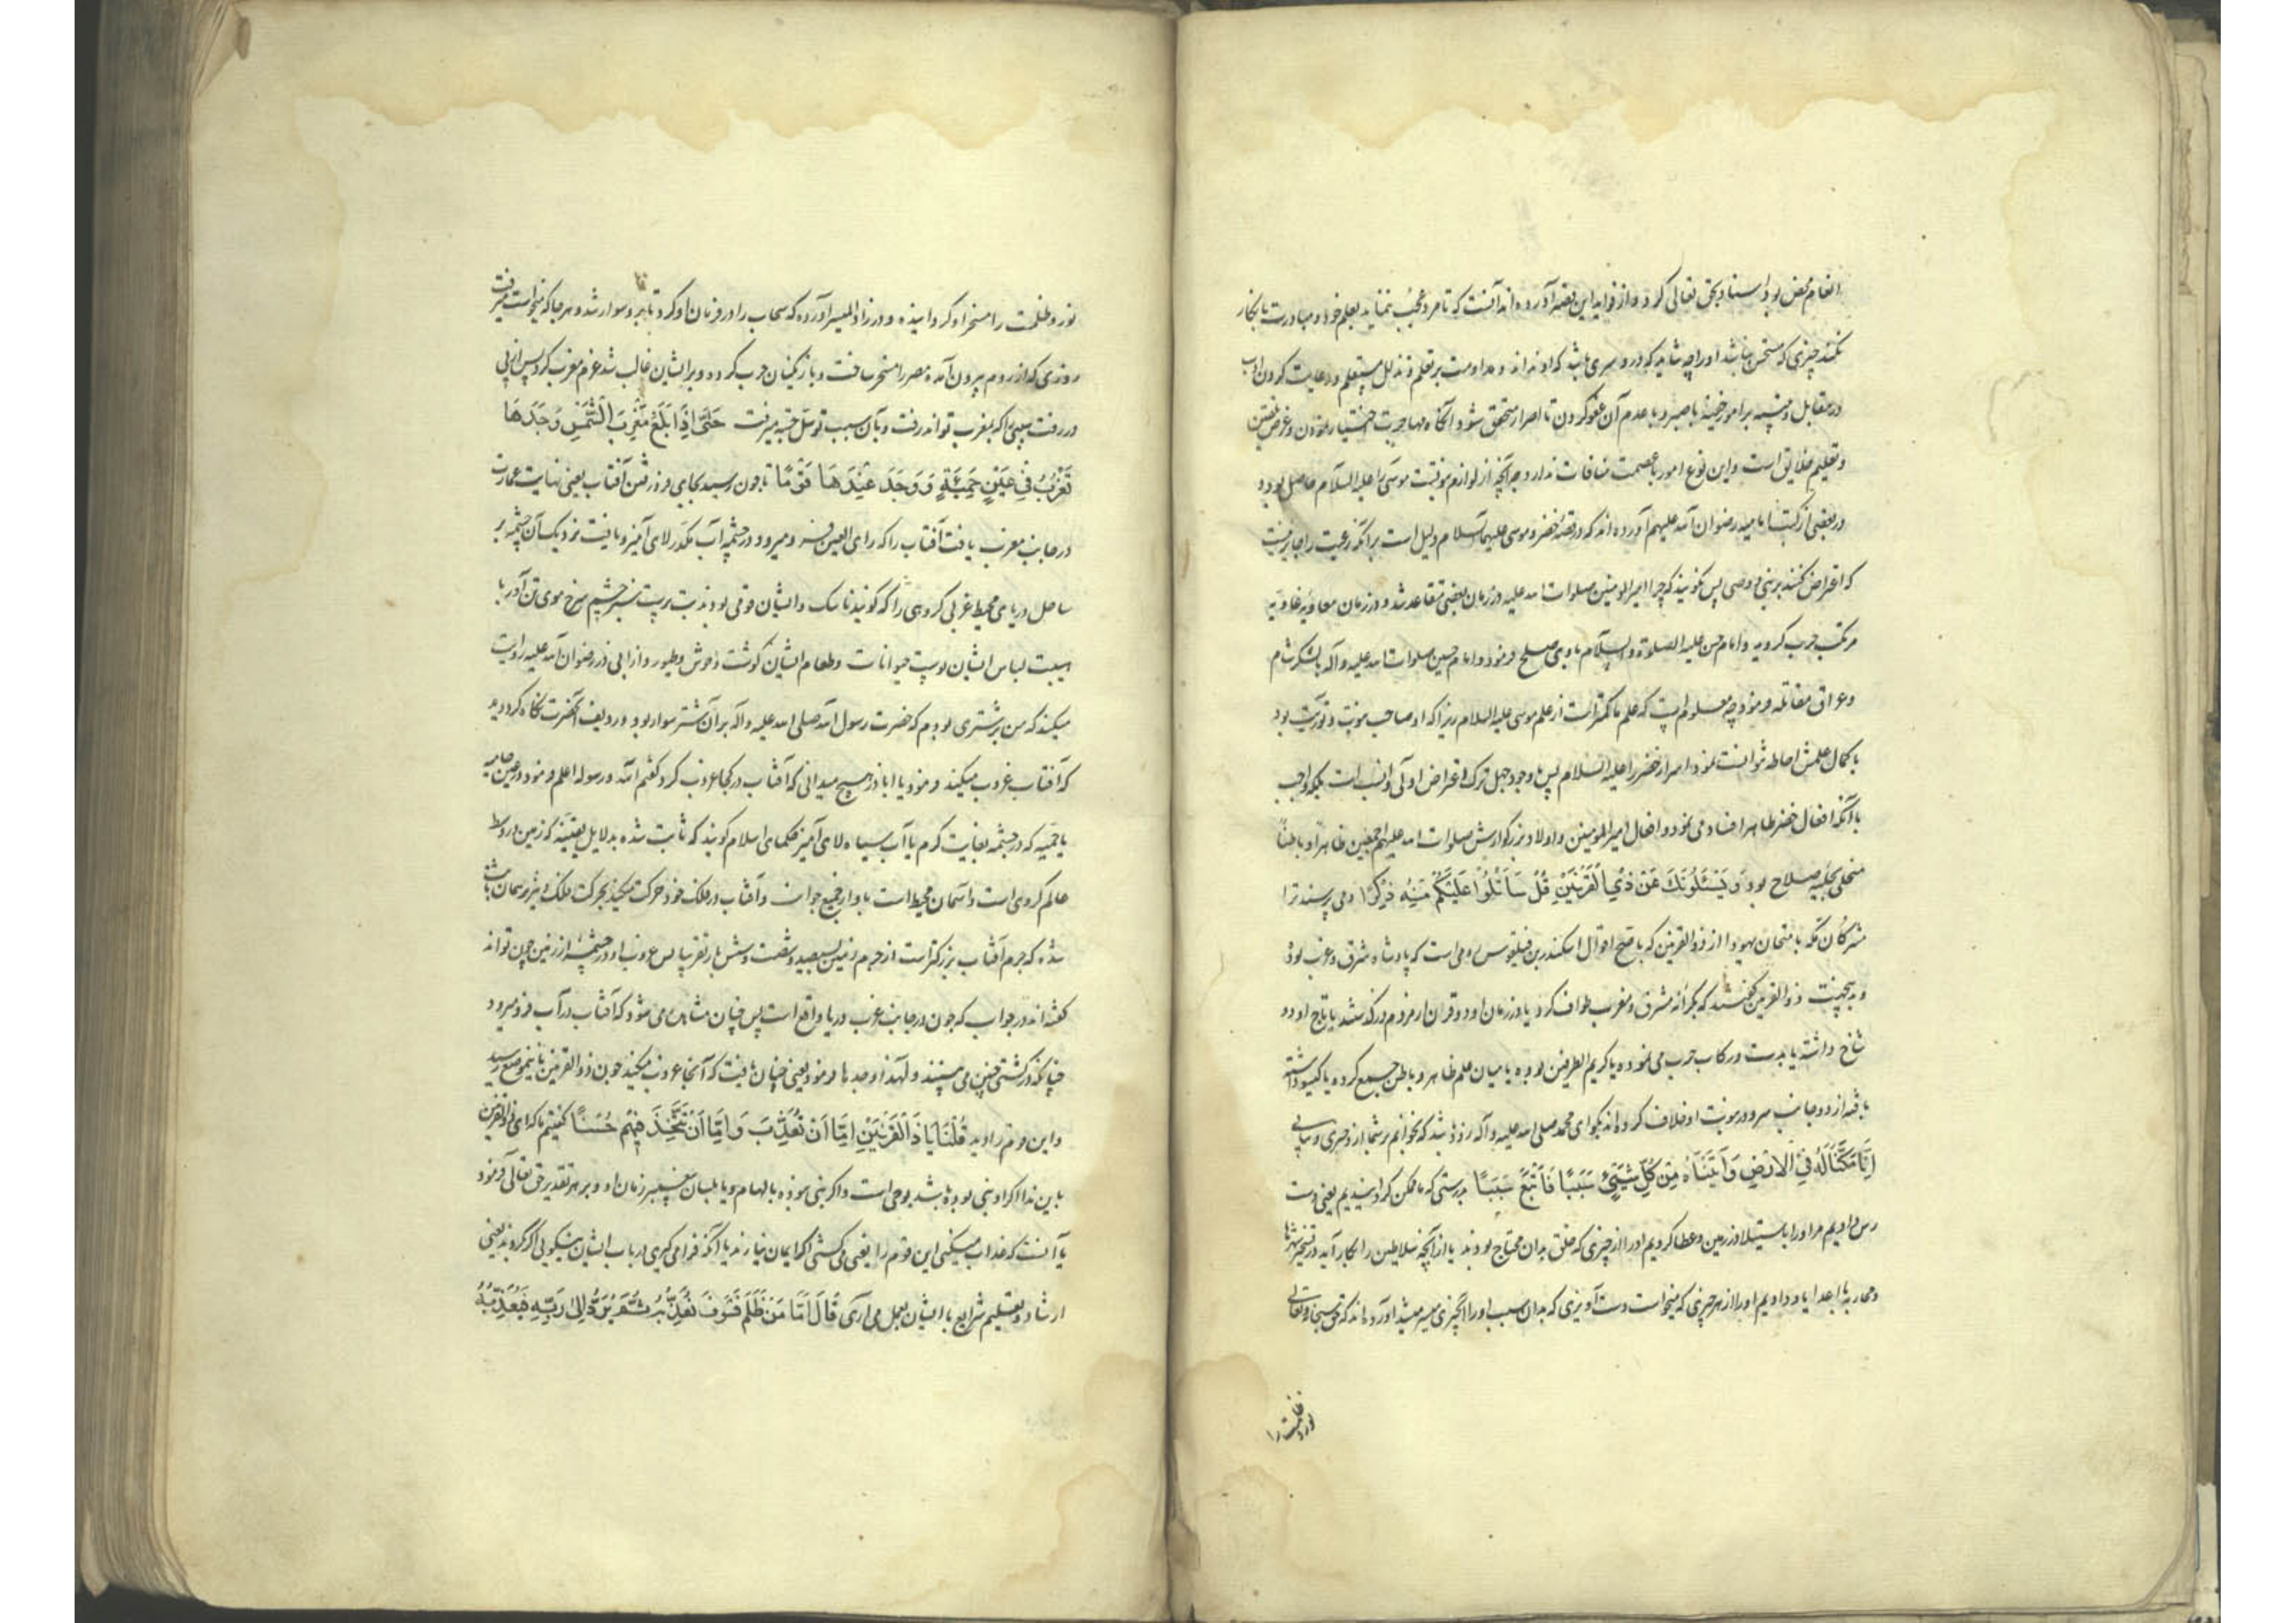 انعام محض بود اسناد بحق تعالی کرد و از فواید این قصه آورده اند آنست که تا مرد معجب ننماید بعلم خود و مبادرت بانکار
نکند چیزی که مستحسن نباشد او را چه شاید که در و سری باشد که او نداند و مداومت بر تعلم و تذلل مستعلم و رعایت کردن ادب
در مقابل و تنبیه بر امور خفیه با صبر و با عدم آن عفو کردن تا اصرار متحقق شود و آنگاه مهاجرت اختیار نمودن و غرض تلقین
و تعلیم خلایق است و این نوع امور با عصمت منافات ندارد چه آنچه از لوازم نبوتست موسی را علیه السلام حاصل بود و
در بعضی از کتب امامیه رضوان الله علیهم آورده اند که در قصه خضر و موسی علیهما السلام دلیل است بر آنکه رعیت را جایز نیست
که اعتراض کنند بر نبی و وصی پس نگویند که چرا امیرالمومنین صلوات الله علیه در زمان بعضی متقاعد شد و در زمان معاویه غاویه
مرتکب حرب گردید و امام حسن علیه الصلوة و السلام با وی صلح فرمود و امام حسین صلوات الله علیه و آله با لشکر شام
و عراق مقاتله فرمود چه معلوم است که علم ما کمتر است از علم موسی علیه السلام زیرا که او صاحب نبوت و توریت بود
با کمال علمش احاطه نتوانست نمود اسرار خضر را علیه السلام پس با وجود جهل ترک اعتراض اولی و انسب است بلکه واجب
با آنکه افعال خضر بظاهر افساد می نمود و افعال امیر المومنین و اولاد بزرگوارش صلوات الله علیهم اجمعین ظاهرا و باطنا
متحلی بحلیه صلاح بود وَ يَسْئَلُونَكَ عَنْ ذِي الْقَرْنَيْنِ قُلْ سَاَتْلُوا عَلَيْكُمْ مِنْهُ ذِكْرًا و می پرسند ترا
مشرکان مکه بامتحان یهود از ذوالقرنین که باصح اقوال اسکندر بن فیلقوس رومی است که پادشاه شرق و غرب بود
و بدینجهت ذوالقرنین گفتند که بکرانه مشرق و مغرب طواف کرد یا در زمان او دو قرن از مردم درگذشتند یا تاج او دو
شاخ داشته یا بدست و رکاب حرب می نموده یا کریم الطرفین بوده یا میان علم ظاهر و باطن جمع کرده یا گیسو داشته
بافته از دو جانب سر و در نبوت او خلاف کرده اند بگو ای محمد صلی الله علیه و آله زود باشد که بخوانم بر شما از و خبری و بیانی
اِنَّا مَكَّنَّا لَهُ فِي الْاَرْضِ وَ آتَيْنَاهُ مِنْ كُلِّ شَيْءٍ سَبَبًا فَاَتْبَعَ سَبَبًا بدرستی که ما ممکن گردانیدیم یعنی دست
رس دادیم مر او را باستیلا در زمین و عطا کردیم او را از چیزی که خلق بدان محتاج بودند یا از آنچه سلاطین را بکار آید در تسخیر شهرها
و محاربه با اعدا یا و دادیم او را از هر چیزی که میخواست دست آویزی که بدان سبب او را آن چیزی میسر میشد آورده اند که حق سبحانه و تعالی
نور و ظلمت را
نور و ظلمت را مسخر او گردانیده و در زاد المسیر آورده که سحاب را در فرمان او کرد تا بر و سوار شد و هر جا که میخواست میرفت
روزی که از روم بیرون آمده مصر را مسخر ساخت و با زنگیان حرب کرد و بر ایشان غالب شد عزم مغرب کرد پس از پی
در رفت سببی را که بمغرب تواند رفت و بآن سبب توسل جسته میرفت حَتَّى اِذَا بَلَغَ مَغْرِبَ الشَّمْسِ وَجَدَهَا
تَغْرُبُ فِي عَيْنٍ حَمِئَةٍ وَ وَجَدَ عِنْدَهَا قَوْمًا تا چون رسید بجای فرو رفتن آفتاب یعنی نهایت عمارت
در جانب مغرب یافت آفتاب را که رای العین فرو میرود در چشمه آب مکدر لای آمیز و یافت نزدیک آن چشمه بر
ساحل دریای محیط غربی گروهی را که گویند ناسک و ایشان قومی بودند بت پرست سبز چشم سرخ موی تن آور با
هیبت لباس ایشان پوست حیوانات و طعام ایشان گوشت وحوش و طیور و از ابی ذر رضوان الله علیه روایت
میکنند که من بر شتری بودم که حضرت رسول الله صلی الله علیه و آله بر آن شتر سوار بود و ردیف آنحضرت نگاه کرد دید
که آفتاب غروب میکند فرمود یا اباذر هیچ میدانی که آفتاب در کجا غروب کرد گفتم الله و رسوله اعلم فرمود در عین حامیه
یا حمئه که در چشمه بغایت گرم یا آب سیاه لای آمیز حکمای اسلام گویند که ثابت شده بدلایل یقینیه که زمین در وسط
عالم کروی است و آسمان محیط است باو از جمیع جوانب و آفتاب در فلک خود حرکت میکند بحرکت فلک و نیز مبرهن ثابت
شده که جرم آفتاب بزرگتر است از جرم زمین بسیصد و شصت و شش بار تقریبا پس غروب او در چشمه از زمین چون تواند
گفته اند در جواب که چون در جانب غرب دریا واقع است پس چنان مشاهد می شود که آفتاب در آب فرو میرود
چنانکه در کشتی چنین می بینند و لهذا وجدها فرمود یعنی چنان یافت که آنجا غروب میکند چون ذوالقرنین باینموضع رسید
و این قوم را دید قُلْنَا يَا ذَا الْقَرْنَيْنِ اِمَّا اَنْ تُعَذِّبَ وَ اِمَّا اَنْ تَتَّخِذَ فِيهِمْ حُسْنًا گفتیم ما که ای ذوالقرنین
باین ندا اگر او نبی بوده باشد بوحی است و اگر نبی نبوده بالهام و یا بلسان پیغمبر زمان او و بر هر تقدیر حق تعالی فرمود
یا آنست که عذاب میکنی این قوم را یعنی می کشی اگر ایمان نیارند یا آنکه فرا می گیری در باب ایشان نیکویی اگر گروند یعنی
ارشاد و تعلیم شرایع با ایشان بعمل می آری قَالَ اَمَّا مَنْ ظَلَمَ فَسَوْفَ نُعَذِّبُهُ ثُمَّ يُرَدُّ اِلَى رَبِّهِ فَيُعَذِّبُهُ